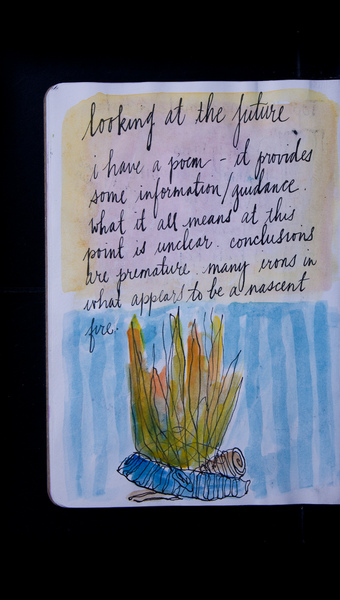 looking at the future
i have a poem - it provides
some information/guidance.
what it all means at this
point is unclear. conclusions
are premature. many irons in
what appears to be a nascent
fire.